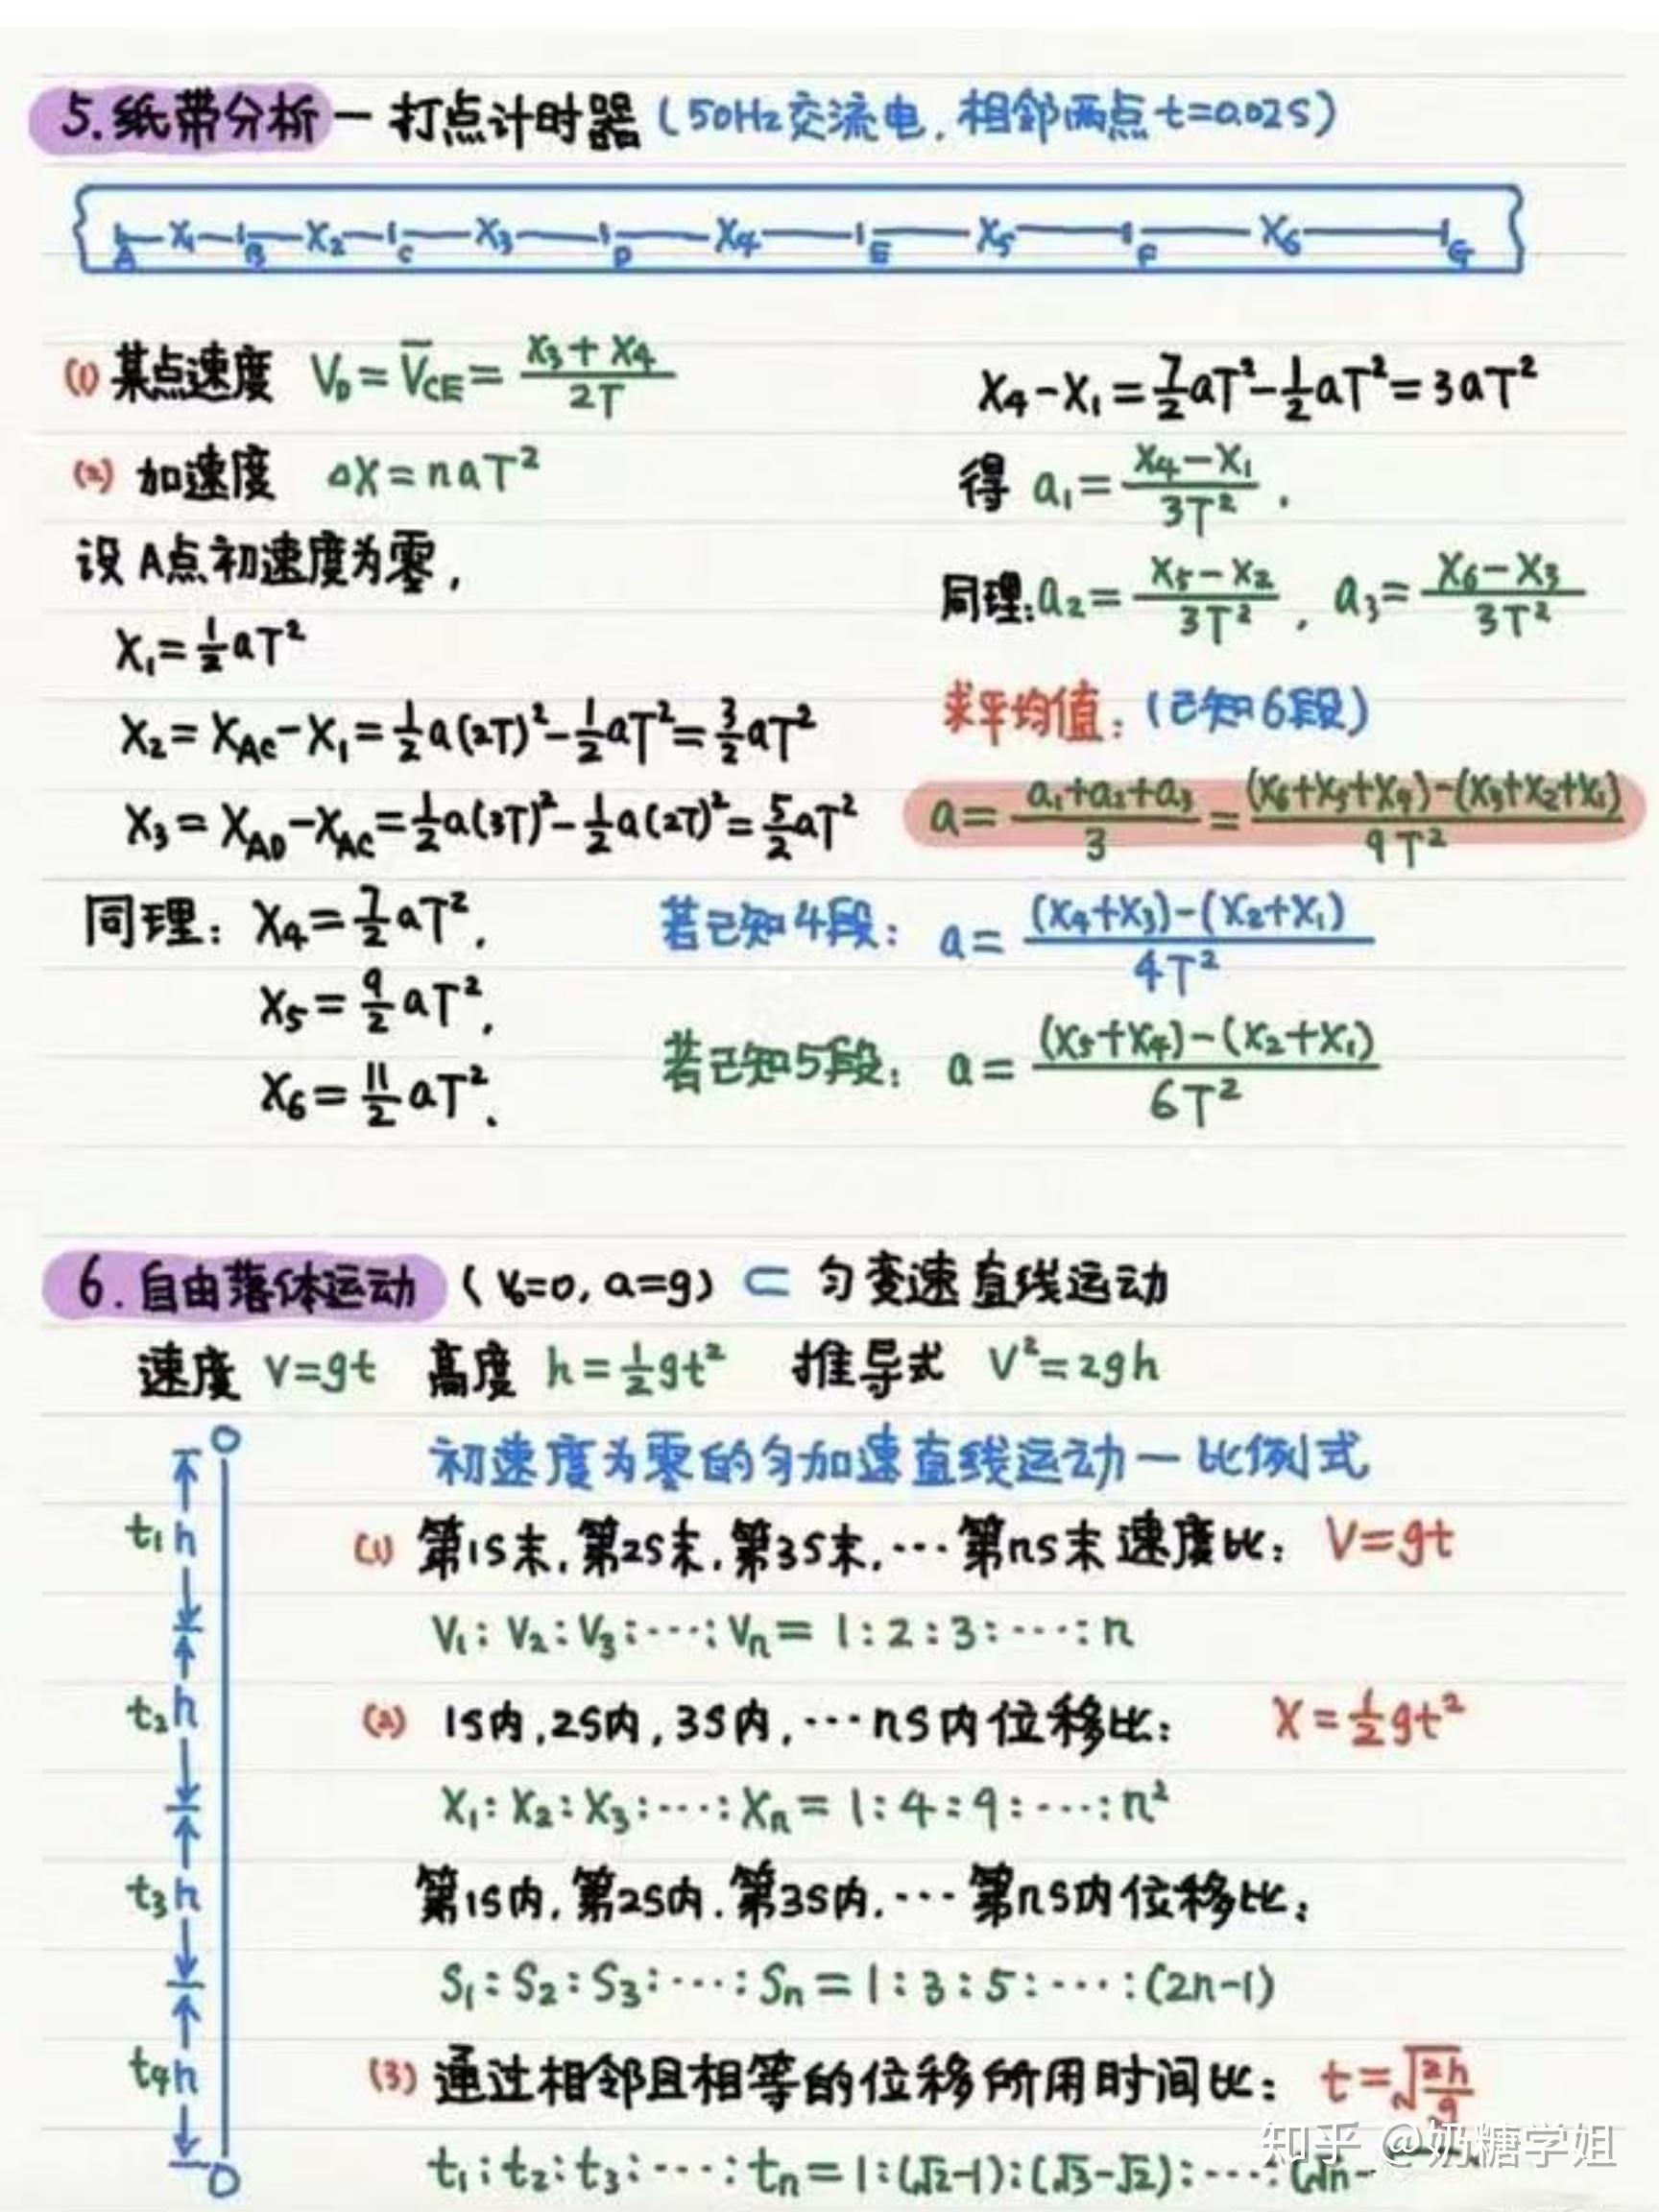 5.纸带分析—打点计时器(50Hz交流电,相邻两点t=0.02S)
A X₁ B X₂ C X₃ D X₄ E X₅ F X₆ G
(1) 某点速度 V_D = V̅_CE = (X₃+X₄)/2T
(2) 加速度 △X=naT²
设A点初速度为零,
X₁=½aT²
X₂=X_AC-X₁=½a(2T)²-½aT²=3/2aT²
X₃=X_AD-X_AC=½a(3T)²-½a(2T)²=5/2aT²
同理: X₄=7/2aT²,
X₅=9/2aT²,
X₆=11/2aT².
X₄-X₁=7/2aT²-½aT²=3aT²
得 a₁=(X₄-X₁)/3T².
同理:a₂=(X₅-X₂)/3T², a₃=(X₆-X₃)/3T²
求平均值:(已知6段)
a=(a₁+a₂+a₃)/3=((X₆+X₅+X₄)-(X₃+X₂+X₁))/9T²
若已知4段: a=((X₄+X₃)-(X₂+X₁))/4T²
若已知5段: a=((X₅+X₄)-(X₂+X₁))/6T²
6.自由落体运动 (V₀=0,a=g) ⊂ 匀变速直线运动
速度 V=gt 高度 h=½gt² 推导式 V²=2gh
t₁ h
t₂ h
t₃ h
t₄ h
初速度为零的匀加速直线运动—比例式
(1) 第1S末,第2S末,第3S末,…第nS末速度比: V=gt
V₁:V₂:V₃:…:Vₙ=1:2:3:…:n
(2) 1S内,2S内,3S内,…nS内位移比: X=½gt²
X₁:X₂:X₃:…:Xₙ=1:4:9:…:n²
第1S内,第2S内.第3S内.…第nS内位移比:
S₁:S₂:S₃:…:Sₙ=1:3:5:…:(2n-1)
(3) 通过相邻且相等的位移所用时间比: t=√(2h/g)
t₁:t₂:t₃:…:tₙ=1:(√2-1):(√3-√2):…:(√n-
知乎 @奶糖学姐